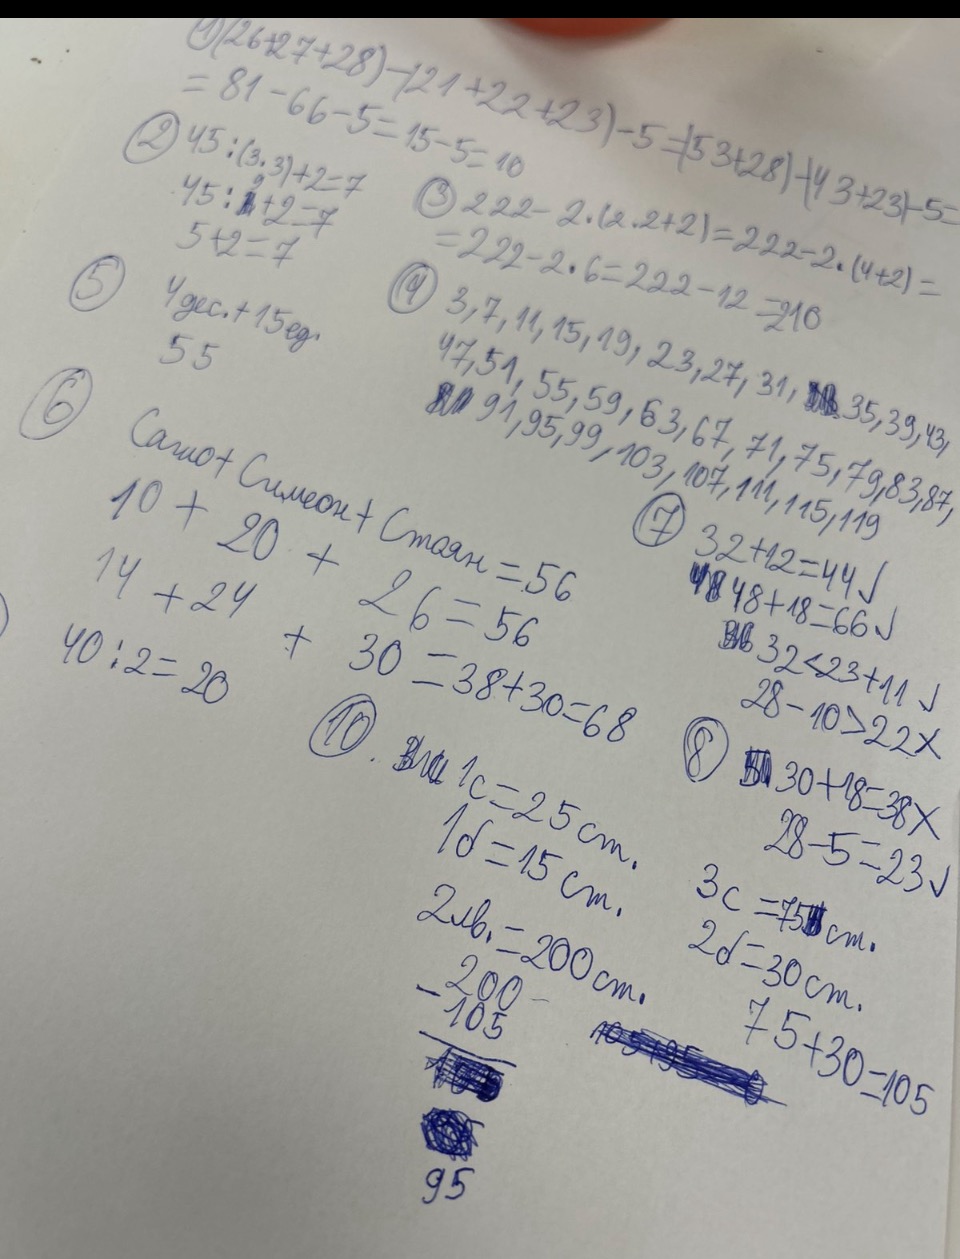 1) (26+27+28)-(21+22+23)-5=(53+28)-(43+23)-5=
=81-66-5=15-5=10
2) 45:(3.3)+2=7
45:9+2=7
5+2=7
3) 222-2.(2.2+2)=222-2.(4+2)=
=222-2.6=222-12=210
4) 3,7,11,15,19,23,27,31,35,39,43,
47,51,55,59,63,67,71,75,79,83,87,
91,95,99,103,107,111,115,119
5) 4дес.+15ед.
55
6) Сашо+Симеон+Стоян=56
10+20+26=56
14+24+30=38+30=68
40:2=20
7) 32+12=44✓
48+18=66✓
32<23+11✓
28-10>22X
8) 30+18=38X
28-5=23✓
10. 1c=25cm.
1d=15cm.
3c=75cm.
2d=30cm.
75+30=105
2лв.=200cm.
200
-105
95